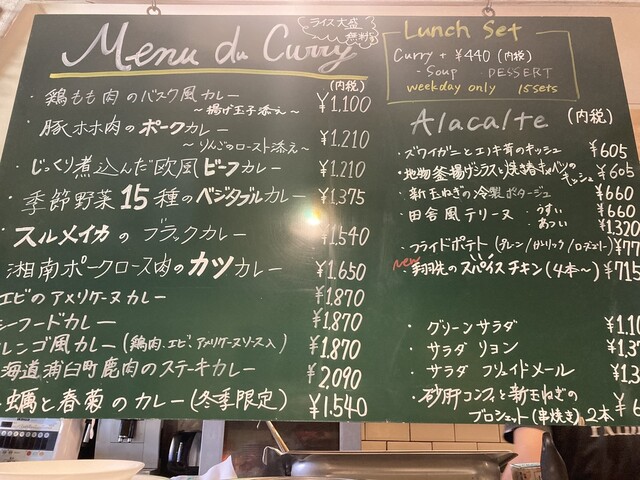 Menu du Curry
ライス大盛
無料
(内税)
・鶏もも肉のバスク風カレー ¥1,100
～揚げ玉子添え～
・豚ホホ肉のポークカレー ¥1,210
～りんごのロースト添え～
・じっくり煮込んだ欧風ビーフカレー ¥1,210
・季節野菜15種のベジタブルカレー ¥1,375
・スルメイカのブラックカレー ¥1,540
湘南ポークロース肉のカツカレー ¥1,650
エビのアメリケーヌカレー ¥1,870
シーフードカレー ¥1,870
レンゴ風カレー(鶏肉、エビ、アメリケーヌソース入) ¥1,870
海道浦臼町鹿肉のステーキカレー ¥2,090
蠣と春菊のカレー(冬季限定) ¥1,540
Lunch Set
Curry + ¥440 (内税)
・Soup DESSERT
weekday only 15sets
Alacalte (内税)
・ズワイガニとエリンギ茸のキッシュ ¥605
・地物釜揚げシラスと焼春キャベツのキッシュ ¥605
・新玉ねぎの冷製ポタージュ ¥660
・田舎風テリーヌ ・うすい ¥660
・あつい 1,320
・フライドポテト(プレーン/ガーリック/ローズマリー) ¥77
New 翔先のスパイスチキン(4本～) ¥715
・グリーンサラダ ¥1,1
・サラダ リヨン ¥1,3
・サラダ フリュイドメール ¥1,3
・砂肝コンフィと新玉ねぎの
ブロシェット(串焼き)2本 ¥6